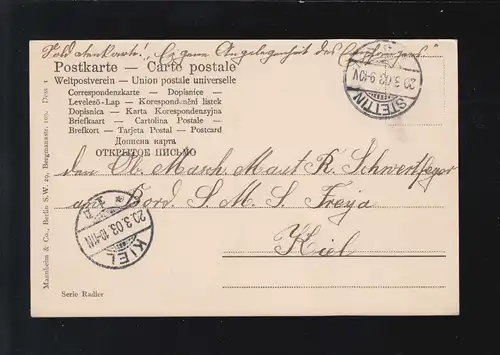 Feldpostkarte! „Eigene Angelegenheit des Empfängers"
Postkarte — Carte postale
Weltpostverein — Union postale universelle
Correspondenzkarte — Dopisnice
Levelező-Lap — Korespondenční lístek
Dopisnica — Karta Korespondenzyjna
Briefkaart — Cartolina Postale
Brefkort — Tarjeta Postal — Postcard
Дописна карта
ОТКРЫТОЕ ПИСЬМО
STETTIN
20.3.03. 9-10V
den Ob. Masch. Maat R. Schwertfeger
an Bord S. M. S. Freya
Kiel
KIEL
20.3.03. 10-11N
Mannheim & Co., Berlin S.W. 29, Bergmannstr. 105.
Serie Radler